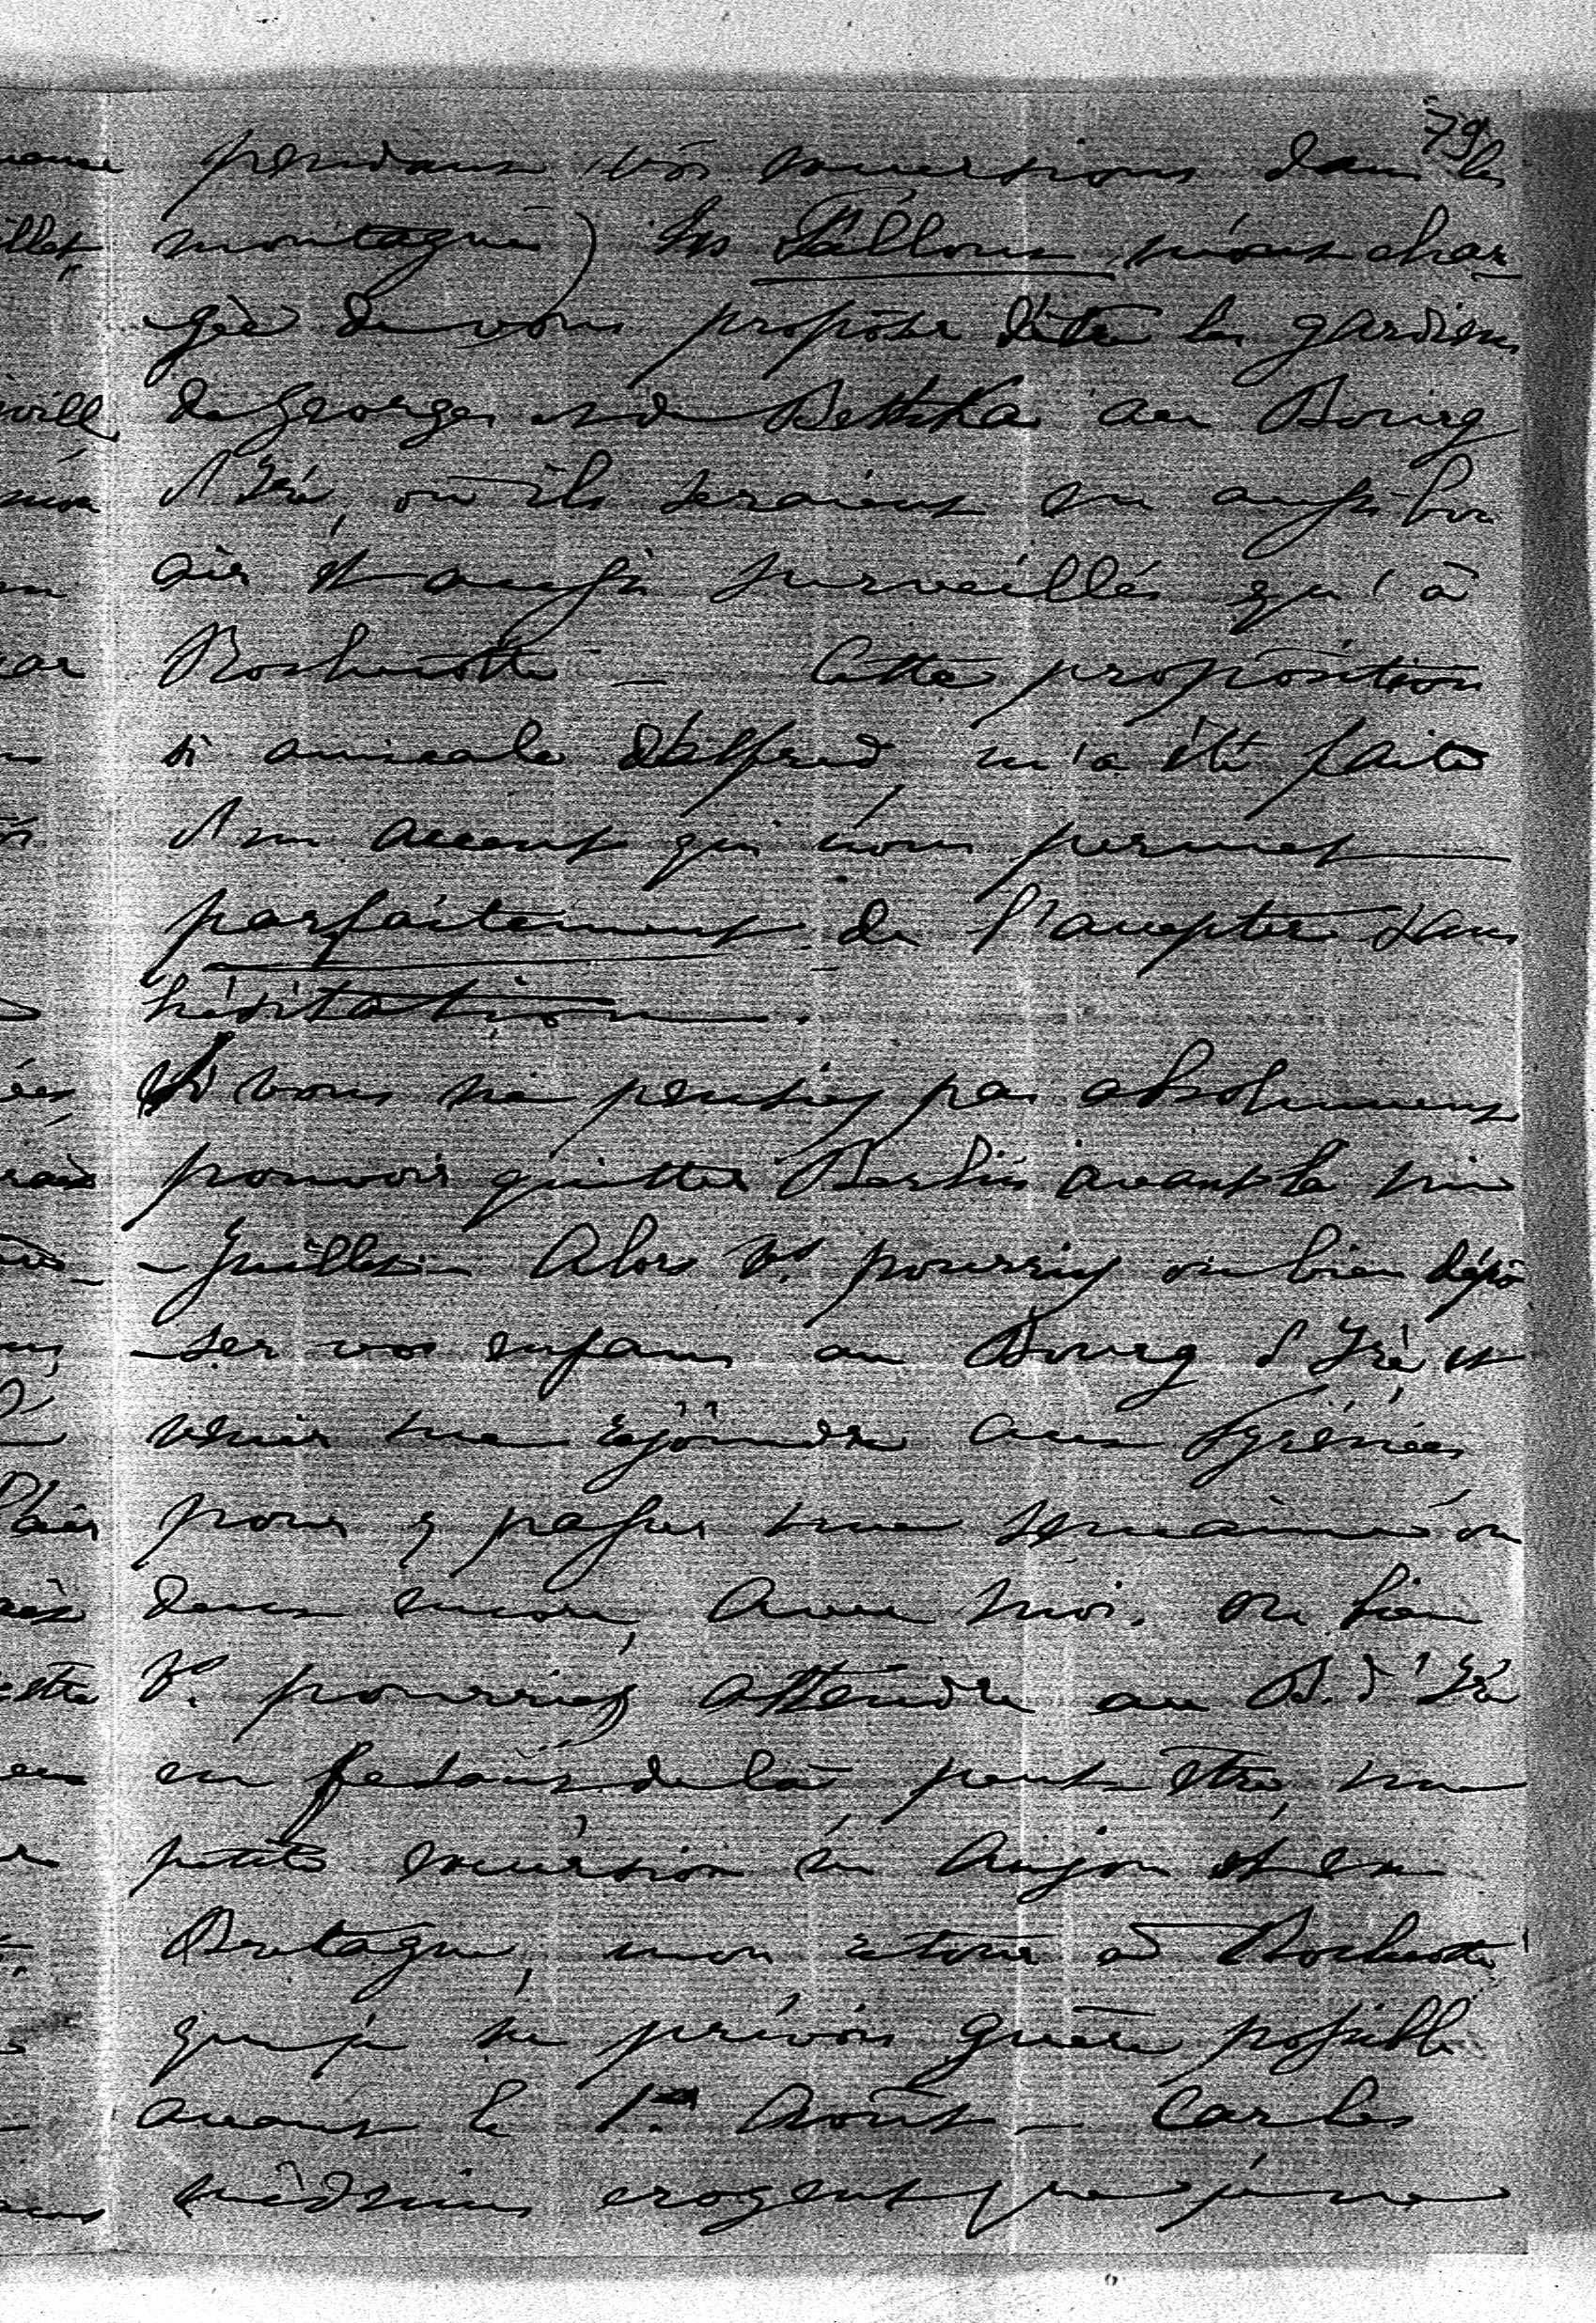 79
pendant vos excursions dans les
montagnes) les Falloux m'ont char-
-gée de vous proposer d'être les gardiens
de Georges et de Bettka au Bourg
d'Iré, où ils seraient en aussi bon
air et aussi surveillés qu'à
Rochecotte – Cette proposition
si amicale d'Alfred, m'a été faite
d'un accent qui vous permet
parfaitement de l'accepter sans
hésitation.
Si vous ne pensiez pas absolument
pouvoir quitter Berlin avant la mi
-Juillet – Alors Vs pourriez ou bien dépo
-ser vos enfans au Bourg d'Iré et
venir me rejoindre aux Pyrénées
pour y passer une semaine ou
deux encore, avec moi. ou bien
Vs pourriez attendre au B. d'Iré
en faisant de là peut-être, une
petite excursion en Anjou et en
Bretagne, mon retour à Rochecotte
que je ne prévois guère possible
avant le 1er Août – Car les
médecins exigent que je ne